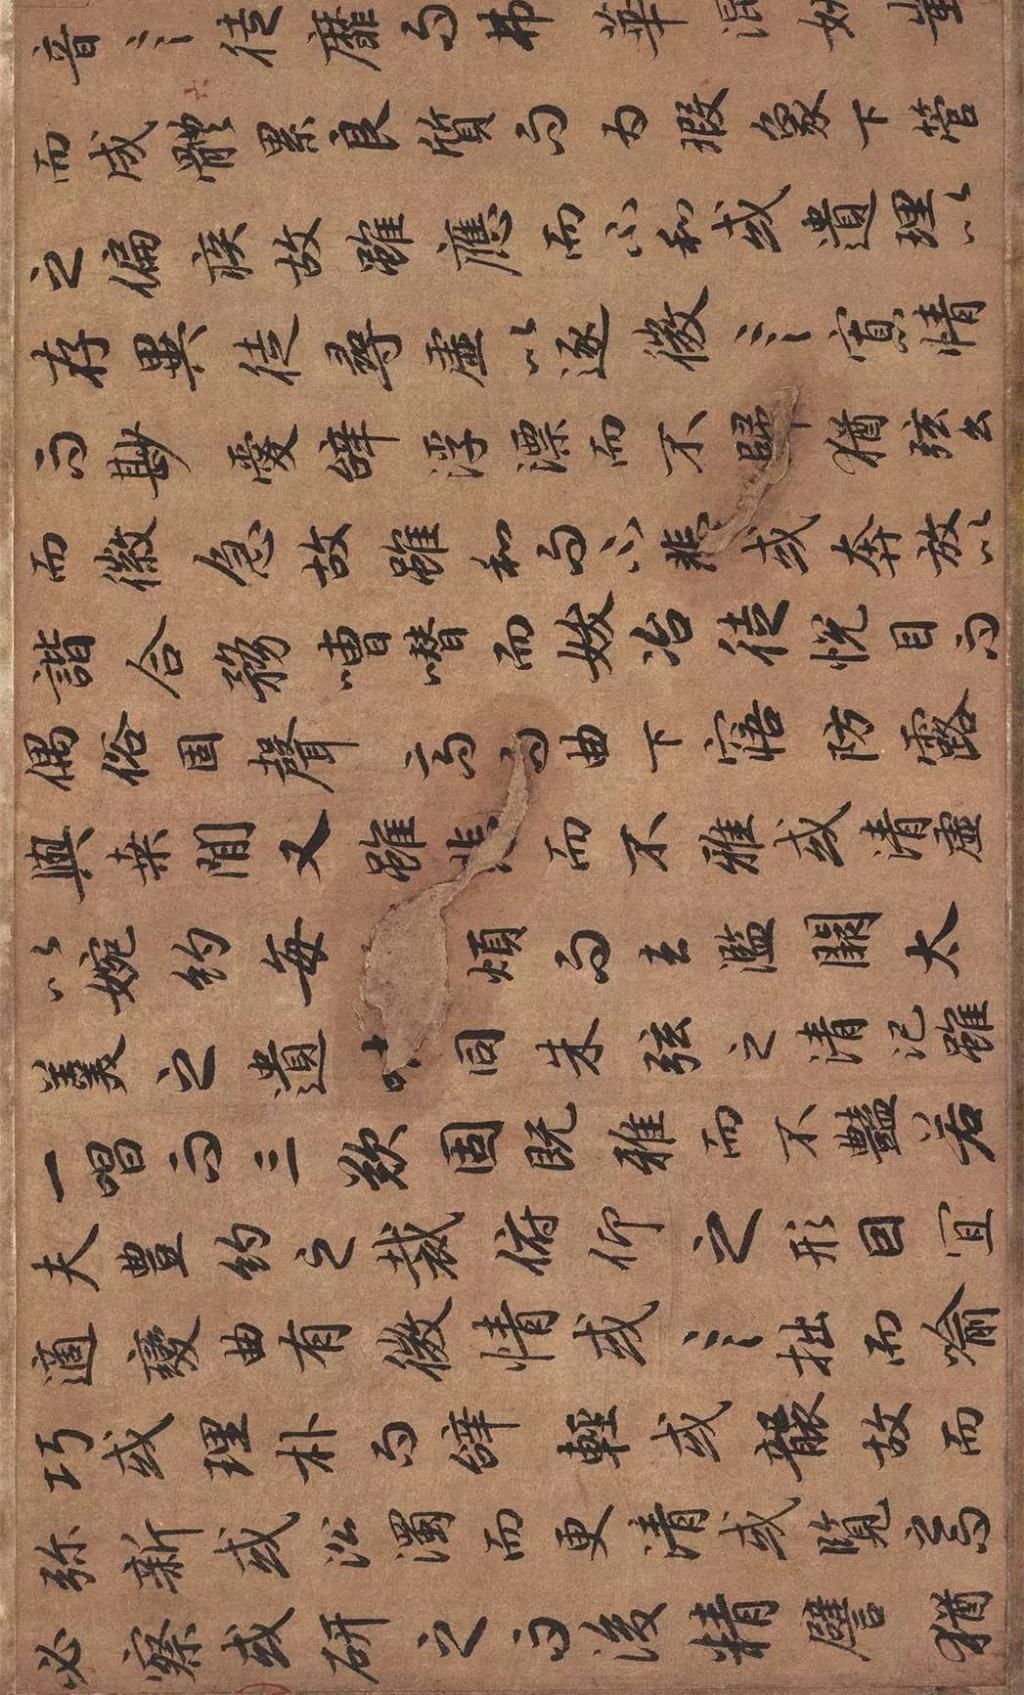 音〻徒靡而弗華混妍蚩
而成體累良質而為瑕象下管
之偏疾故雖應而不和或遺理以
存異徒尋虛以逐微〻寡情
而尠愛辭浮漂而不歸猶弦幺
而徽急故雖和而不悲或奔放以
諧合務嘈囋而妖冶徒悅目而
偶俗固聲高而曲下寤防露
與桒間又雖悲而不雅或清虛
以婉約每煩而去濫闕太
羹之遺味同朱弦之清汜雖
一唱而三歎固既雅而不豔若
夫豐約之裁俯仰之形因宜
適變曲有微情或〻拙而喻
巧或理朴而辭輕或襲故而
弥新或沿濁而更清或覽之而
必察或研之而後精譬猶